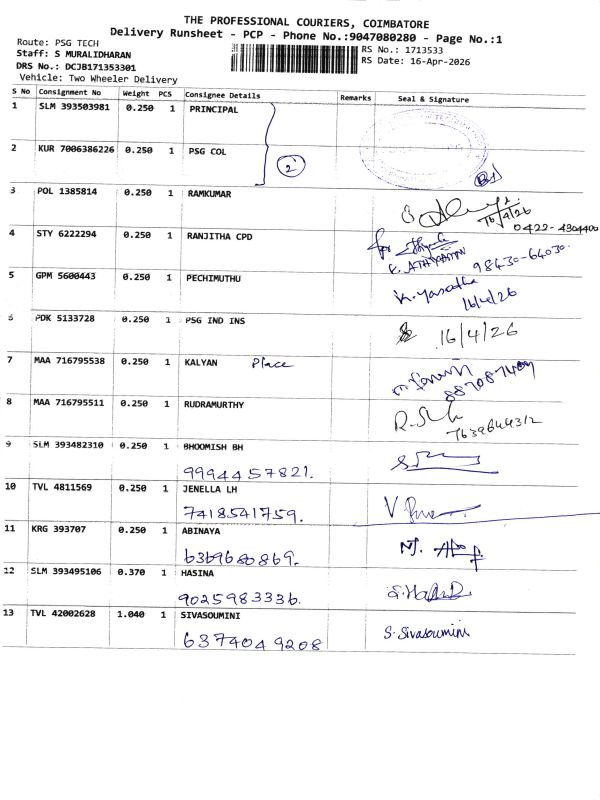 THE PROFESSIONAL COURIERS, COIMBATORE
Delivery Runsheet - PCP - Phone No.:9047080280 - Page No.:1
Route: PSG TECH
Staff: S MURALIDHARAN
DRS No.: DCJB171353301
Vehicle: Two Wheeler Delivery
RS No.: 1713533
RS Date: 16-Apr-2026
S No Consignment No Weight PCS Consignee Details Remarks Seal & Signature
1 SLM 393503981 0.250 1 PRINCIPAL
2
2 KUR 7006386226 0.250 1 PSG COL
3 POL 1385814 0.250 1 RAMKUMAR
16/4/26
0422-4304400
4 STY 6222294 0.250 1 RANJITHA CPD
for
98430-64030.
5 GPM 5600443 0.250 1 PECHIMUTHU
16/4/26
6 PDK 5133728 0.250 1 PSG IND INS 16/4/26
7 MAA 716795538 0.250 1 KALYAN Place
8 MAA 716795511 0.250 1 RUDRAMURTHY
9 SLM 393482310 0.250 1 BHOOMISH BH
9994457821.
10 TVL 4811569 0.250 1 JENELLA LH
7418541759.
11 KRG 393707 0.250 1 ABINAYA
6369680869.
12 SLM 393495106 0.370 1 HASINA
9025983336.
13 TVL 42002628 1.040 1 SIVASOUMINI S. Sivasoumini
6374049208